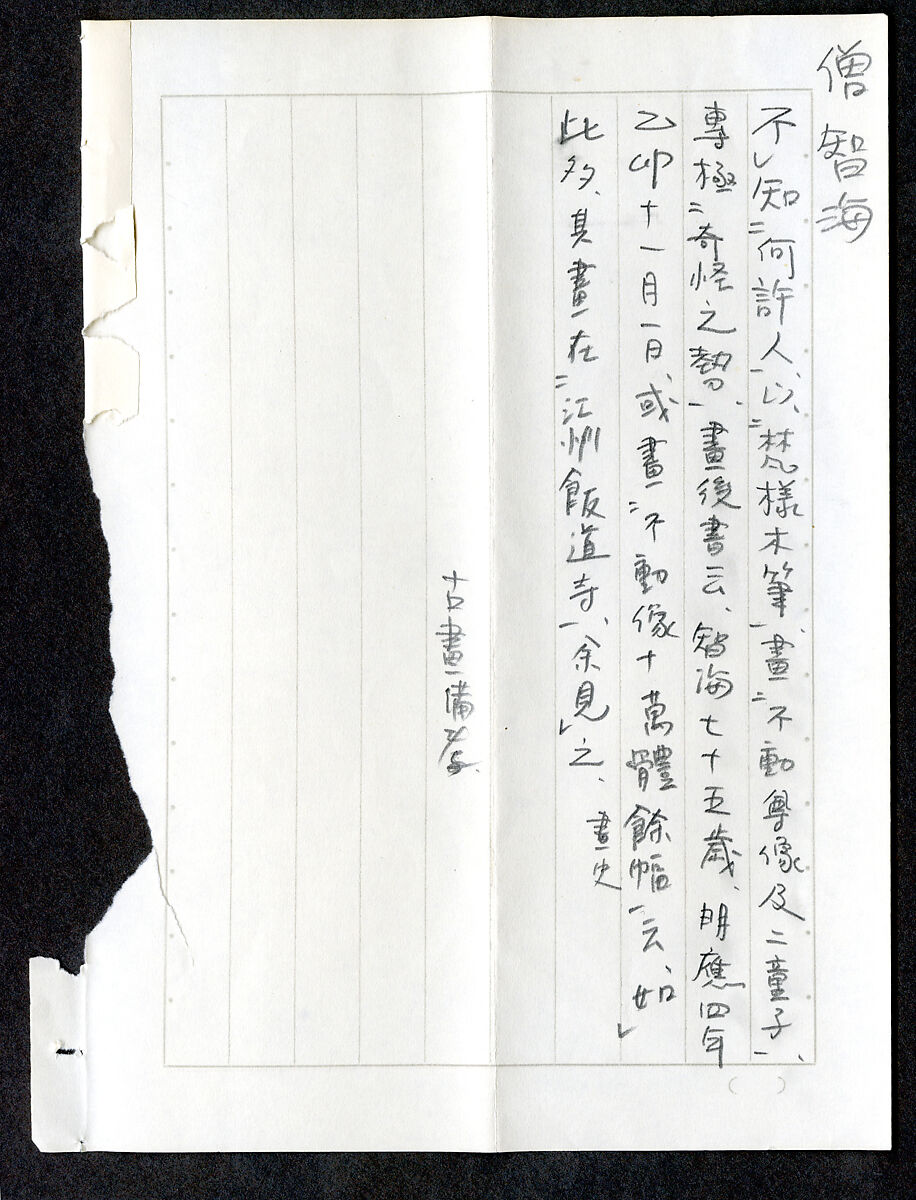 僧 智海
不レ知二何許人一、以二梵様木筆一、畫二不動尊像及二童子一、
專極二奇怪之勢一、畫後書云、智海七十五歳、明應四年
乙卯十一月一日、或畫二不動像十萬體餘幅一云、如レ
此多、其畫在二江州飯道寺一、余見レ之、 畫史
古畫備考、
( )